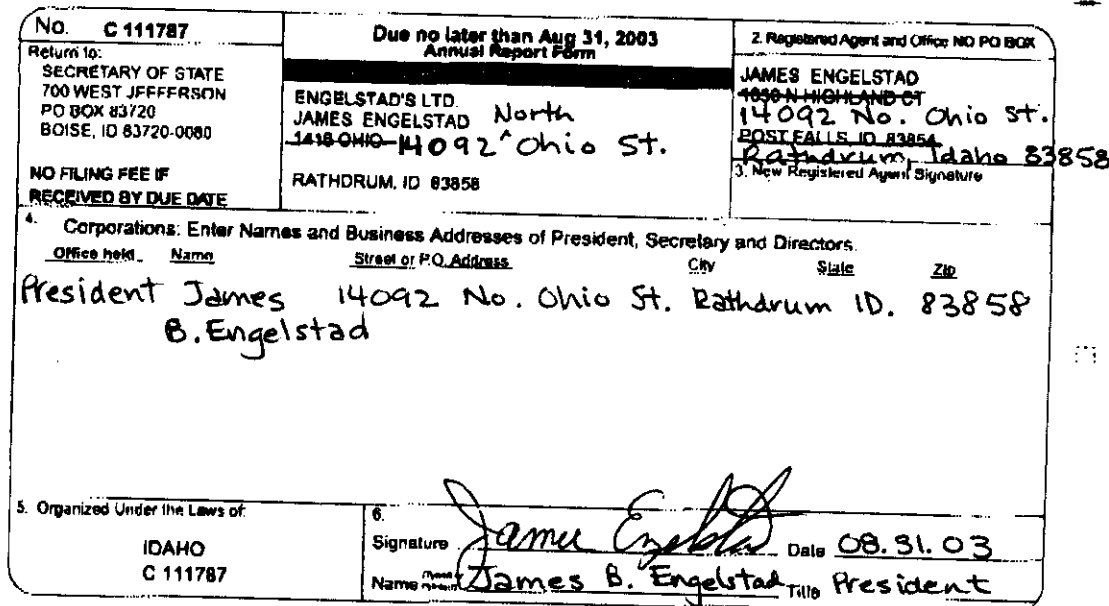 No. C 111787
Return to:
SECRETARY OF STATE
700 WEST JEFFERSON
PO BOX 83720
BOISE, ID 83720-0080
NO FILING FEE IF
RECEIVED BY DUE DATE
Due no later than Aug 31, 2003
Annual Report Form
ENGELSTAD'S LTD.
JAMES ENGELSTAD North
1416 OHIO 14092 ^ Ohio St.
RATHDRUM, ID 83858
2. Registered Agent and Office NO PO BOX
JAMES ENGELSTAD
1030 N HIGHLAND CT
14092 No. Ohio St.
POST FALLS, ID 83854
Rathdrum, Idaho 83858
3. New Registered Agent Signature
4. Corporations: Enter Names and Business Addresses of President, Secretary and Directors.
Office held Name Street or P.O. Address City State Zip
President James 14092 No. Ohio St. Rathdrum ID. 83858
B. Engelstad
5. Organized Under the Laws of:
IDAHO
C 111787
6.
Signature James Engelstad Date 08.31.03
Name James B. Engelstad Title President